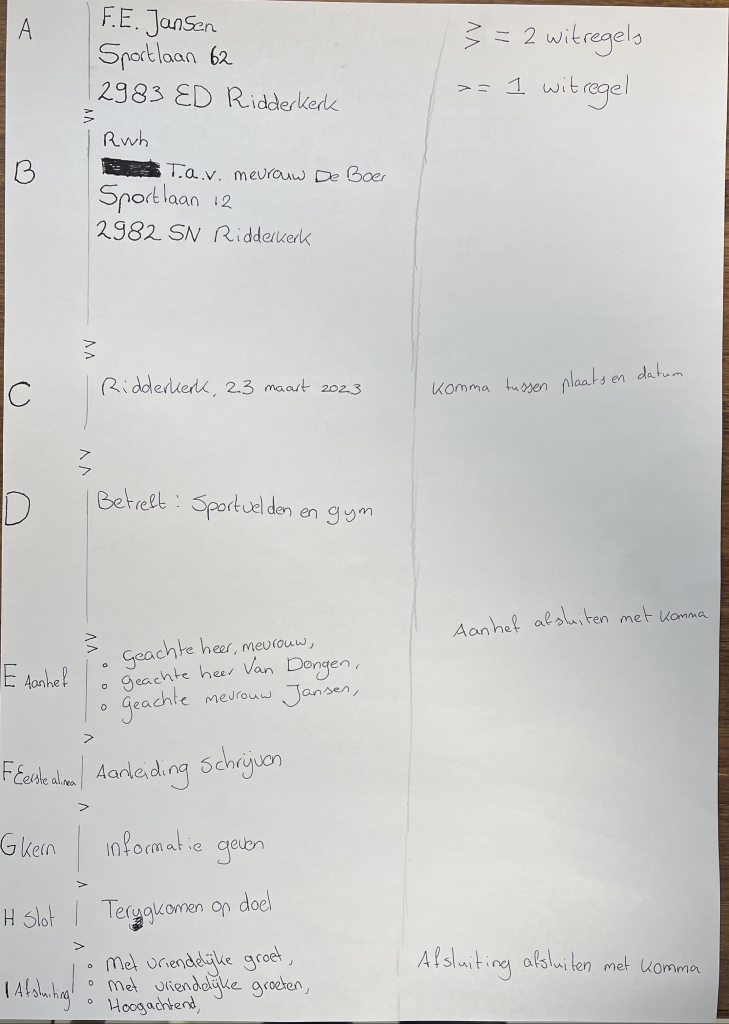 A F.E. Jansen
Sportlaan 62
2983 ED Ridderkerk
>
> = 2 witregels
> = 1 witregel
>
>
B Rvvh
T.a.v. mevrouw De Boer
Sportlaan 12
2982 SN Ridderkerk
>
>
C Ridderkerk, 23 maart 2023
Komma tussen plaats en datum
>
>
D Betreft: Sportvelden en gym
>
>
Aanhef afsluiten met komma
E Aanhef
o Geachte heer, mevrouw,
o geachte heer Van Dongen,
o geachte mevrouw Jansen,
>
F Eerste alinea Aanleiding schrijven
>
G kern informatie geven
>
H Slot Terugkomen op doel
>
I Afsluiting
o Met vriendelijke groet,
o Met vriendelijke groeten,
o Hoogachtend,
Afsluiting afsluiten met komma